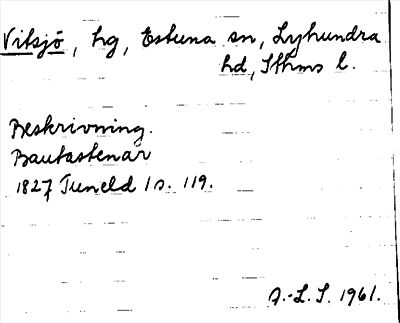 Vitsjö, hg, Estuna sn, Lyhundra
hd, Sthms l.
Beskrivning.
Bautastenar
1827 Tuneld 1 s. 119.
A.-L.S. 1961.